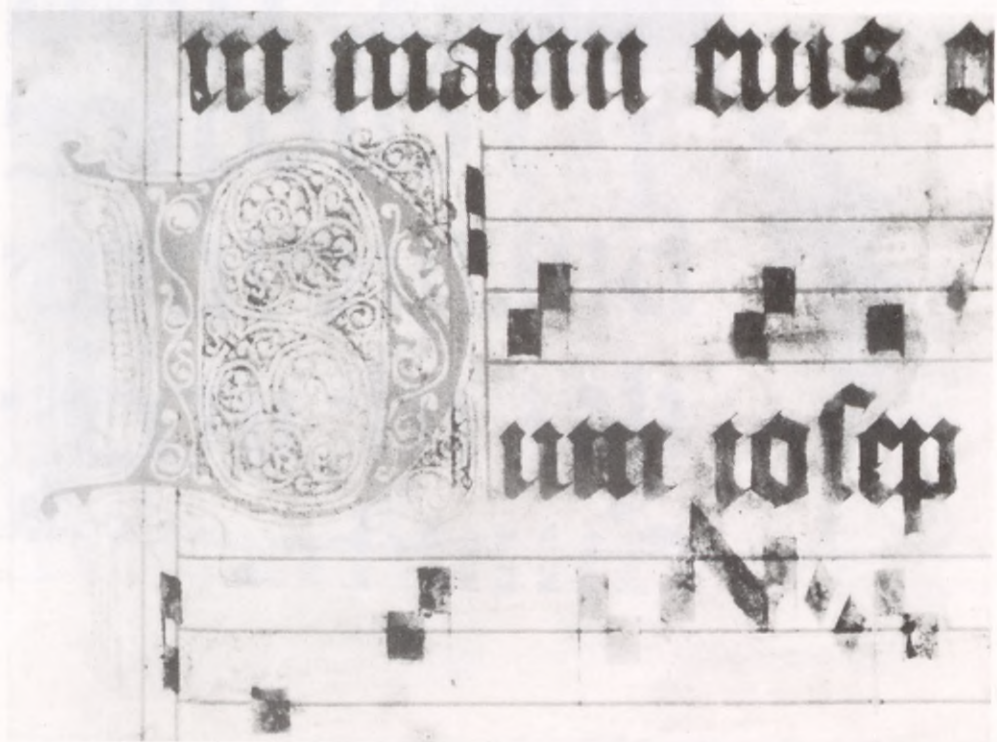 in manu eius
Dum iosep